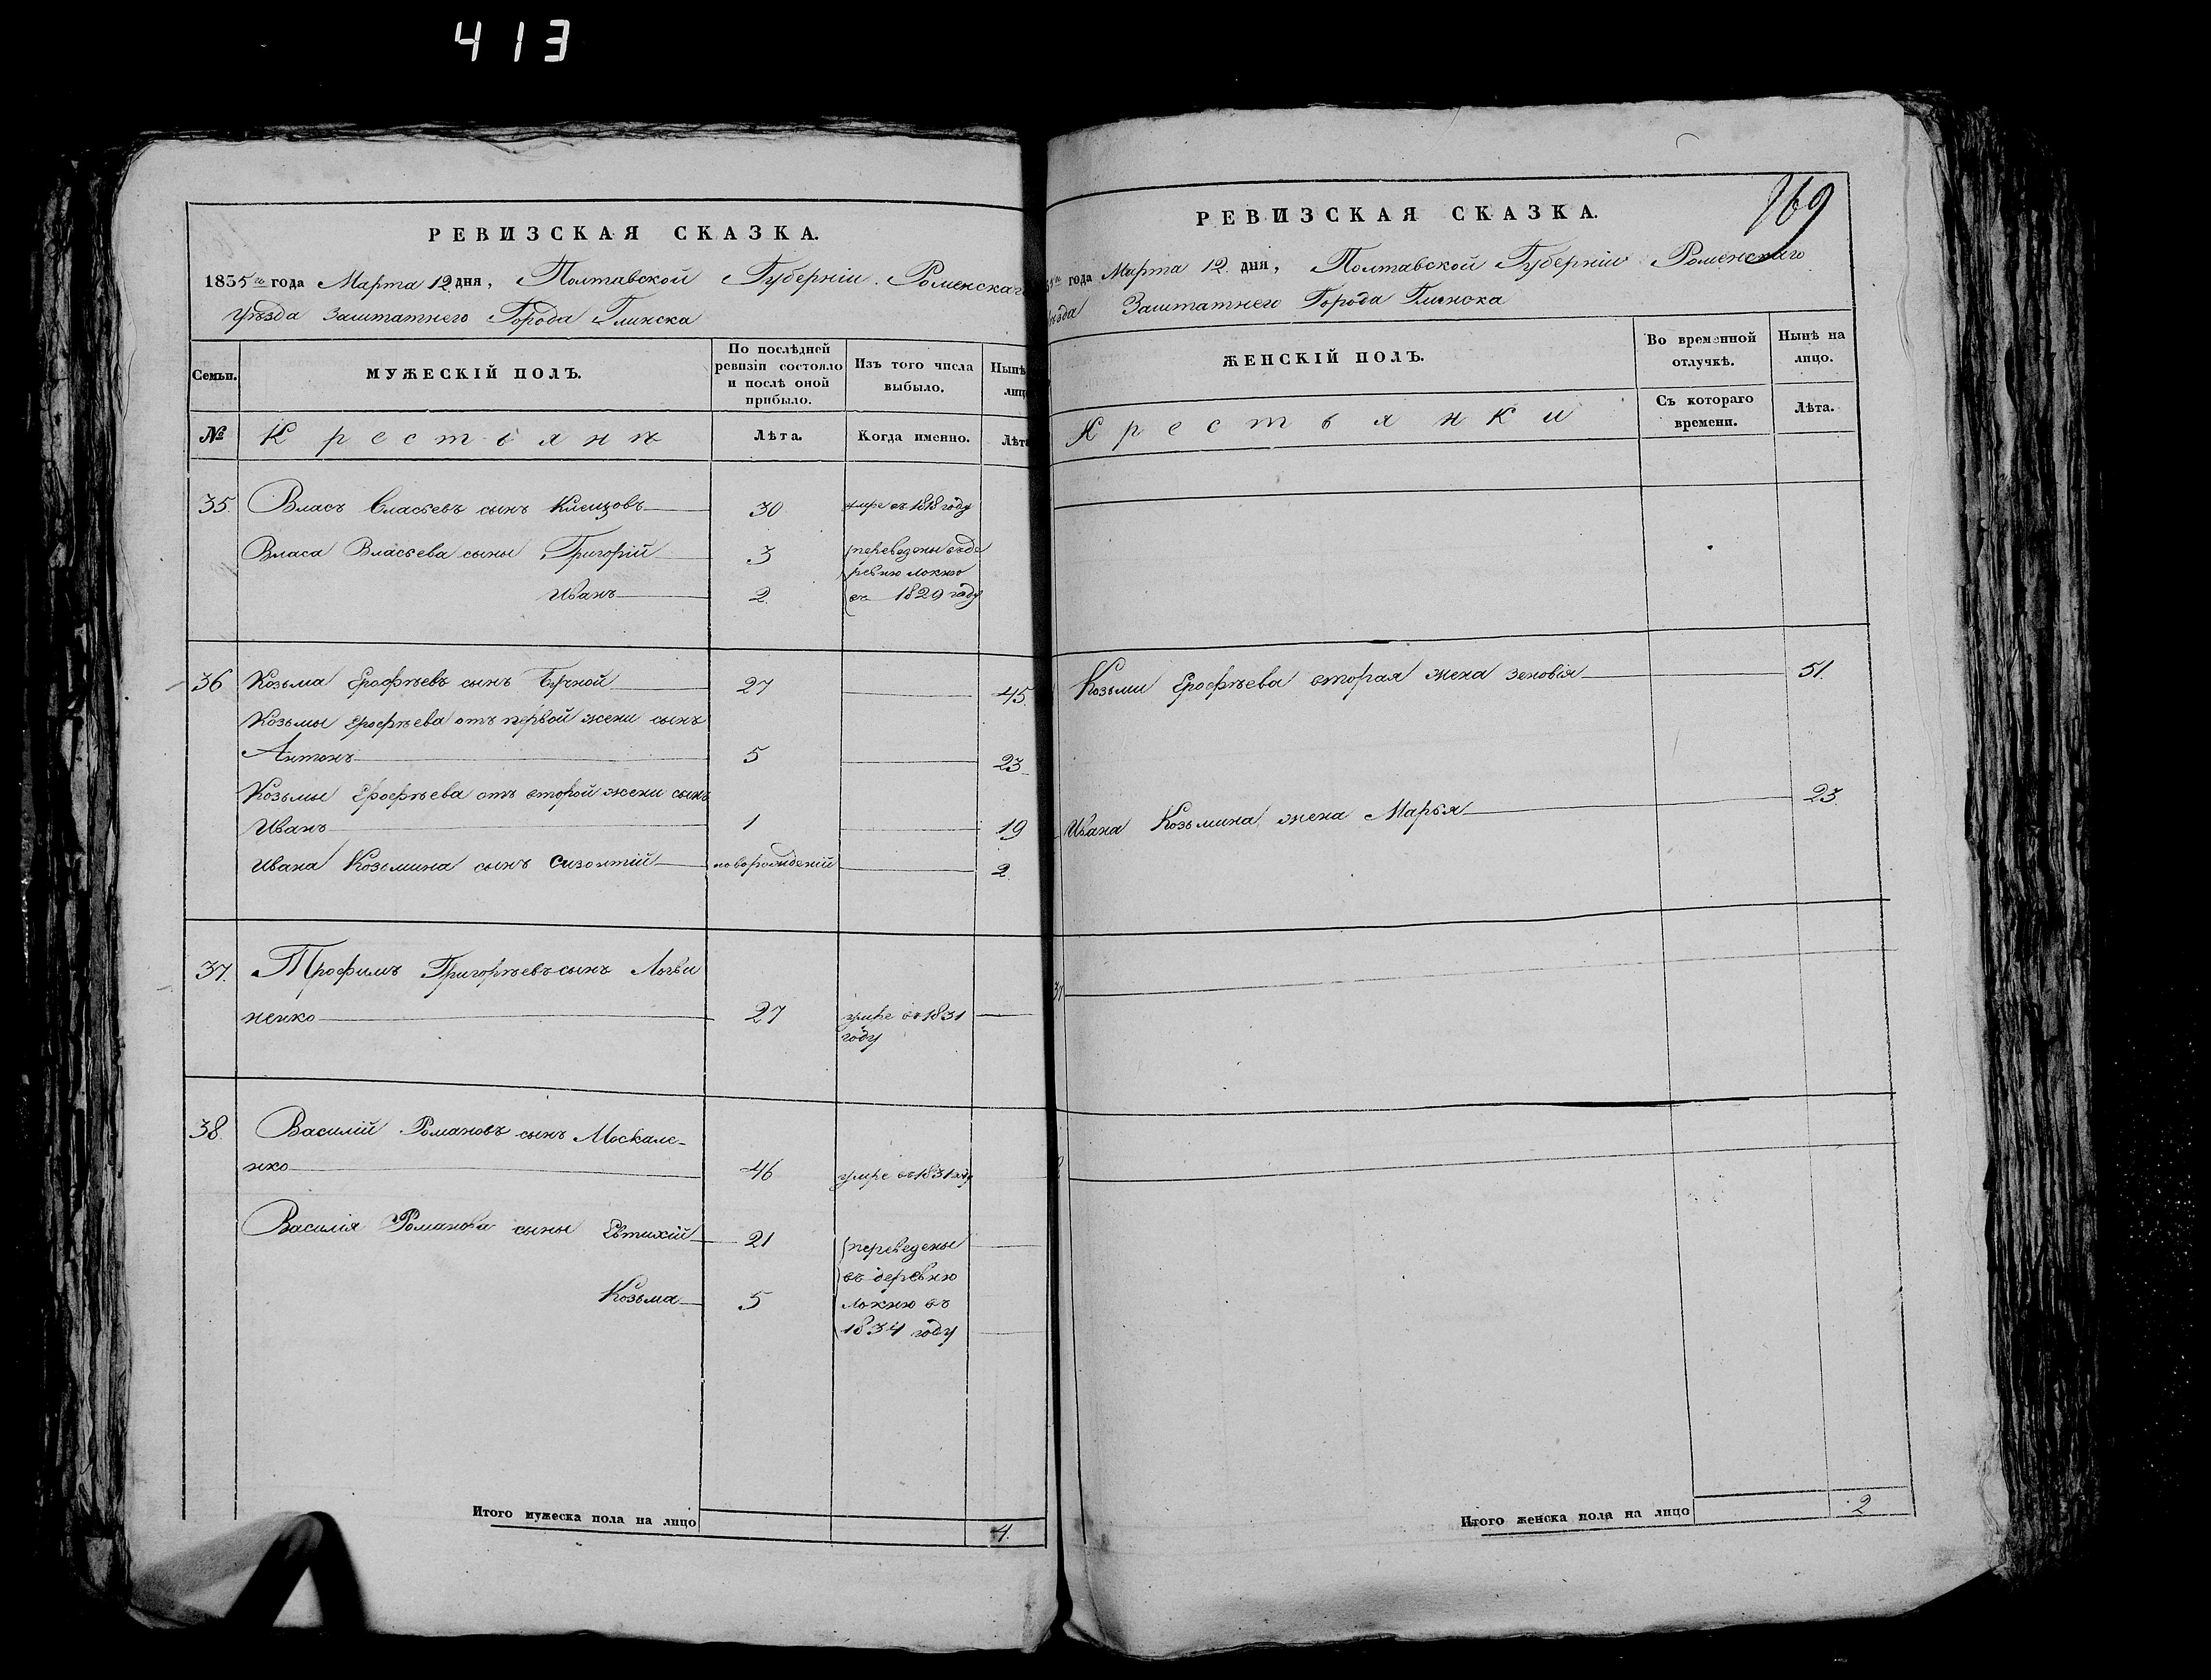 413
РЕВИЗСКАЯ СКАЗКА.
1835го года Марта 12 дня, Полтавской Губерніи Роменскаго
Уѣзда Заштатнего Города Глинска
Семьи.
МУЖЕСКІЙ ПОЛЪ.
По послѣдней ревизіи состояло и послѣ оной прибыло.
Изъ того числа выбыло.
Нынѣ
лиц
№
Крестьянъ
Лѣта.
Когда именно.
Лѣта
35. Власъ Власьевъ сынъ 30 умре въ 1818 году
Власа Власьева сыны Григорій 3 переведены въ де
ревню Локню
Иванъ 2. въ 1829 году
36 Козьма Ерофѣевъ сынъ 27 45.
Козьмы Ерофѣева отъ первой жены сынъ
Антонъ 5 23
Козьмы Ерофѣева отъ второй жены сынъ
Иванъ 1 19
Ивана Козьмина сынъ Сизонтій новорожденій 2.
37. Трофимъ Григорьевъ сынъ Логви
ненко 27 умре въ 1831
году
38 Василій Романовъ сынъ Москале-
нко 46 умре въ 1831 году
Василія Романова сыны Евтихій 21 переведены
въ деревню
Козьма 5 Локню въ
1834 году
Итого мужеска пола на лицо 4.
769
РЕВИЗСКАЯ СКАЗКА.
35го года Марта 12. дня, Полтавской Губерніи Роменскаго
ѣзда Заштатнего Города Глинска
ЖЕНСКІЙ ПОЛЪ.
Во временной отлучкѣ.
Нынѣ на лицо.
Крестьянки
Съ котораго времени.
Лѣта.
Козьми Ерофѣева вторая жена Зеновія 51.
Ивана Козьмина жена Марья 23.
37
Итого женска пола на лицо 2